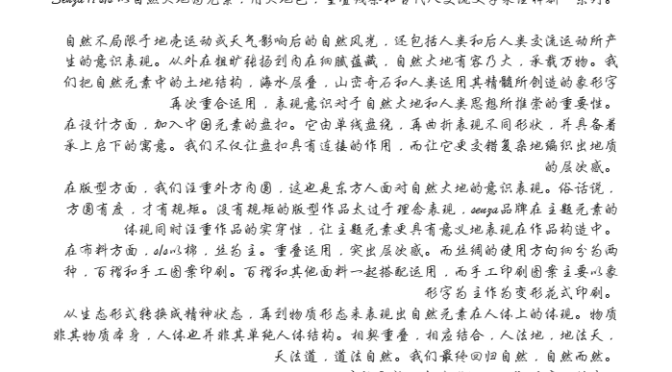 自然不局限于地壳运动或天气影响后的自然风光，还包括人类和后人类交流运动所产
生的意识表现。从外在粗旷张扬到内在细腻蕴藏，自然大地有容乃大，承载万物。我
们把自然元素中的土地结构，海水层叠，山峦奇石和人类运用其精髓所创造的象形字
再次重合运用，表现意识对于自然大地和人类思想所推崇的重要性。
在设计方面，加入中国元素的盘扣。它由单线盘绕，再曲折表现不同形状，并具备着
承上启下的寓意。我们不仅让盘扣具有连接的作用，而让它更交错复杂地编织出地质
的层次感。
在版型方面，我们注重外方内圆，这也是东方人面对自然大地的意识表现。俗话说，
方圆有度，才有规矩。没有规矩的版型作品太过于理念表现，senza品牌在主题元素的
体现同时注重作品的实穿性，让主题元素更具有意义地表现在作品构造中。
在布料方面，olo以棉，丝为主。重叠运用，突出层次感。而丝绸的使用方向细分为两
种，百褶和手工图案印刷。百褶和其他面料一起搭配运用，而手工印刷图案主要以象
形字为主作为变形花式印刷。
从生态形式转换成精神状态，再到物质形态来表现出自然元素在人体上的体现。物质
非其物质本身，人体也并非其单纯人体结构。相契重叠，相应结合，人法地，地法天，
天法道，道法自然。我们最终回归自然，自然而然。